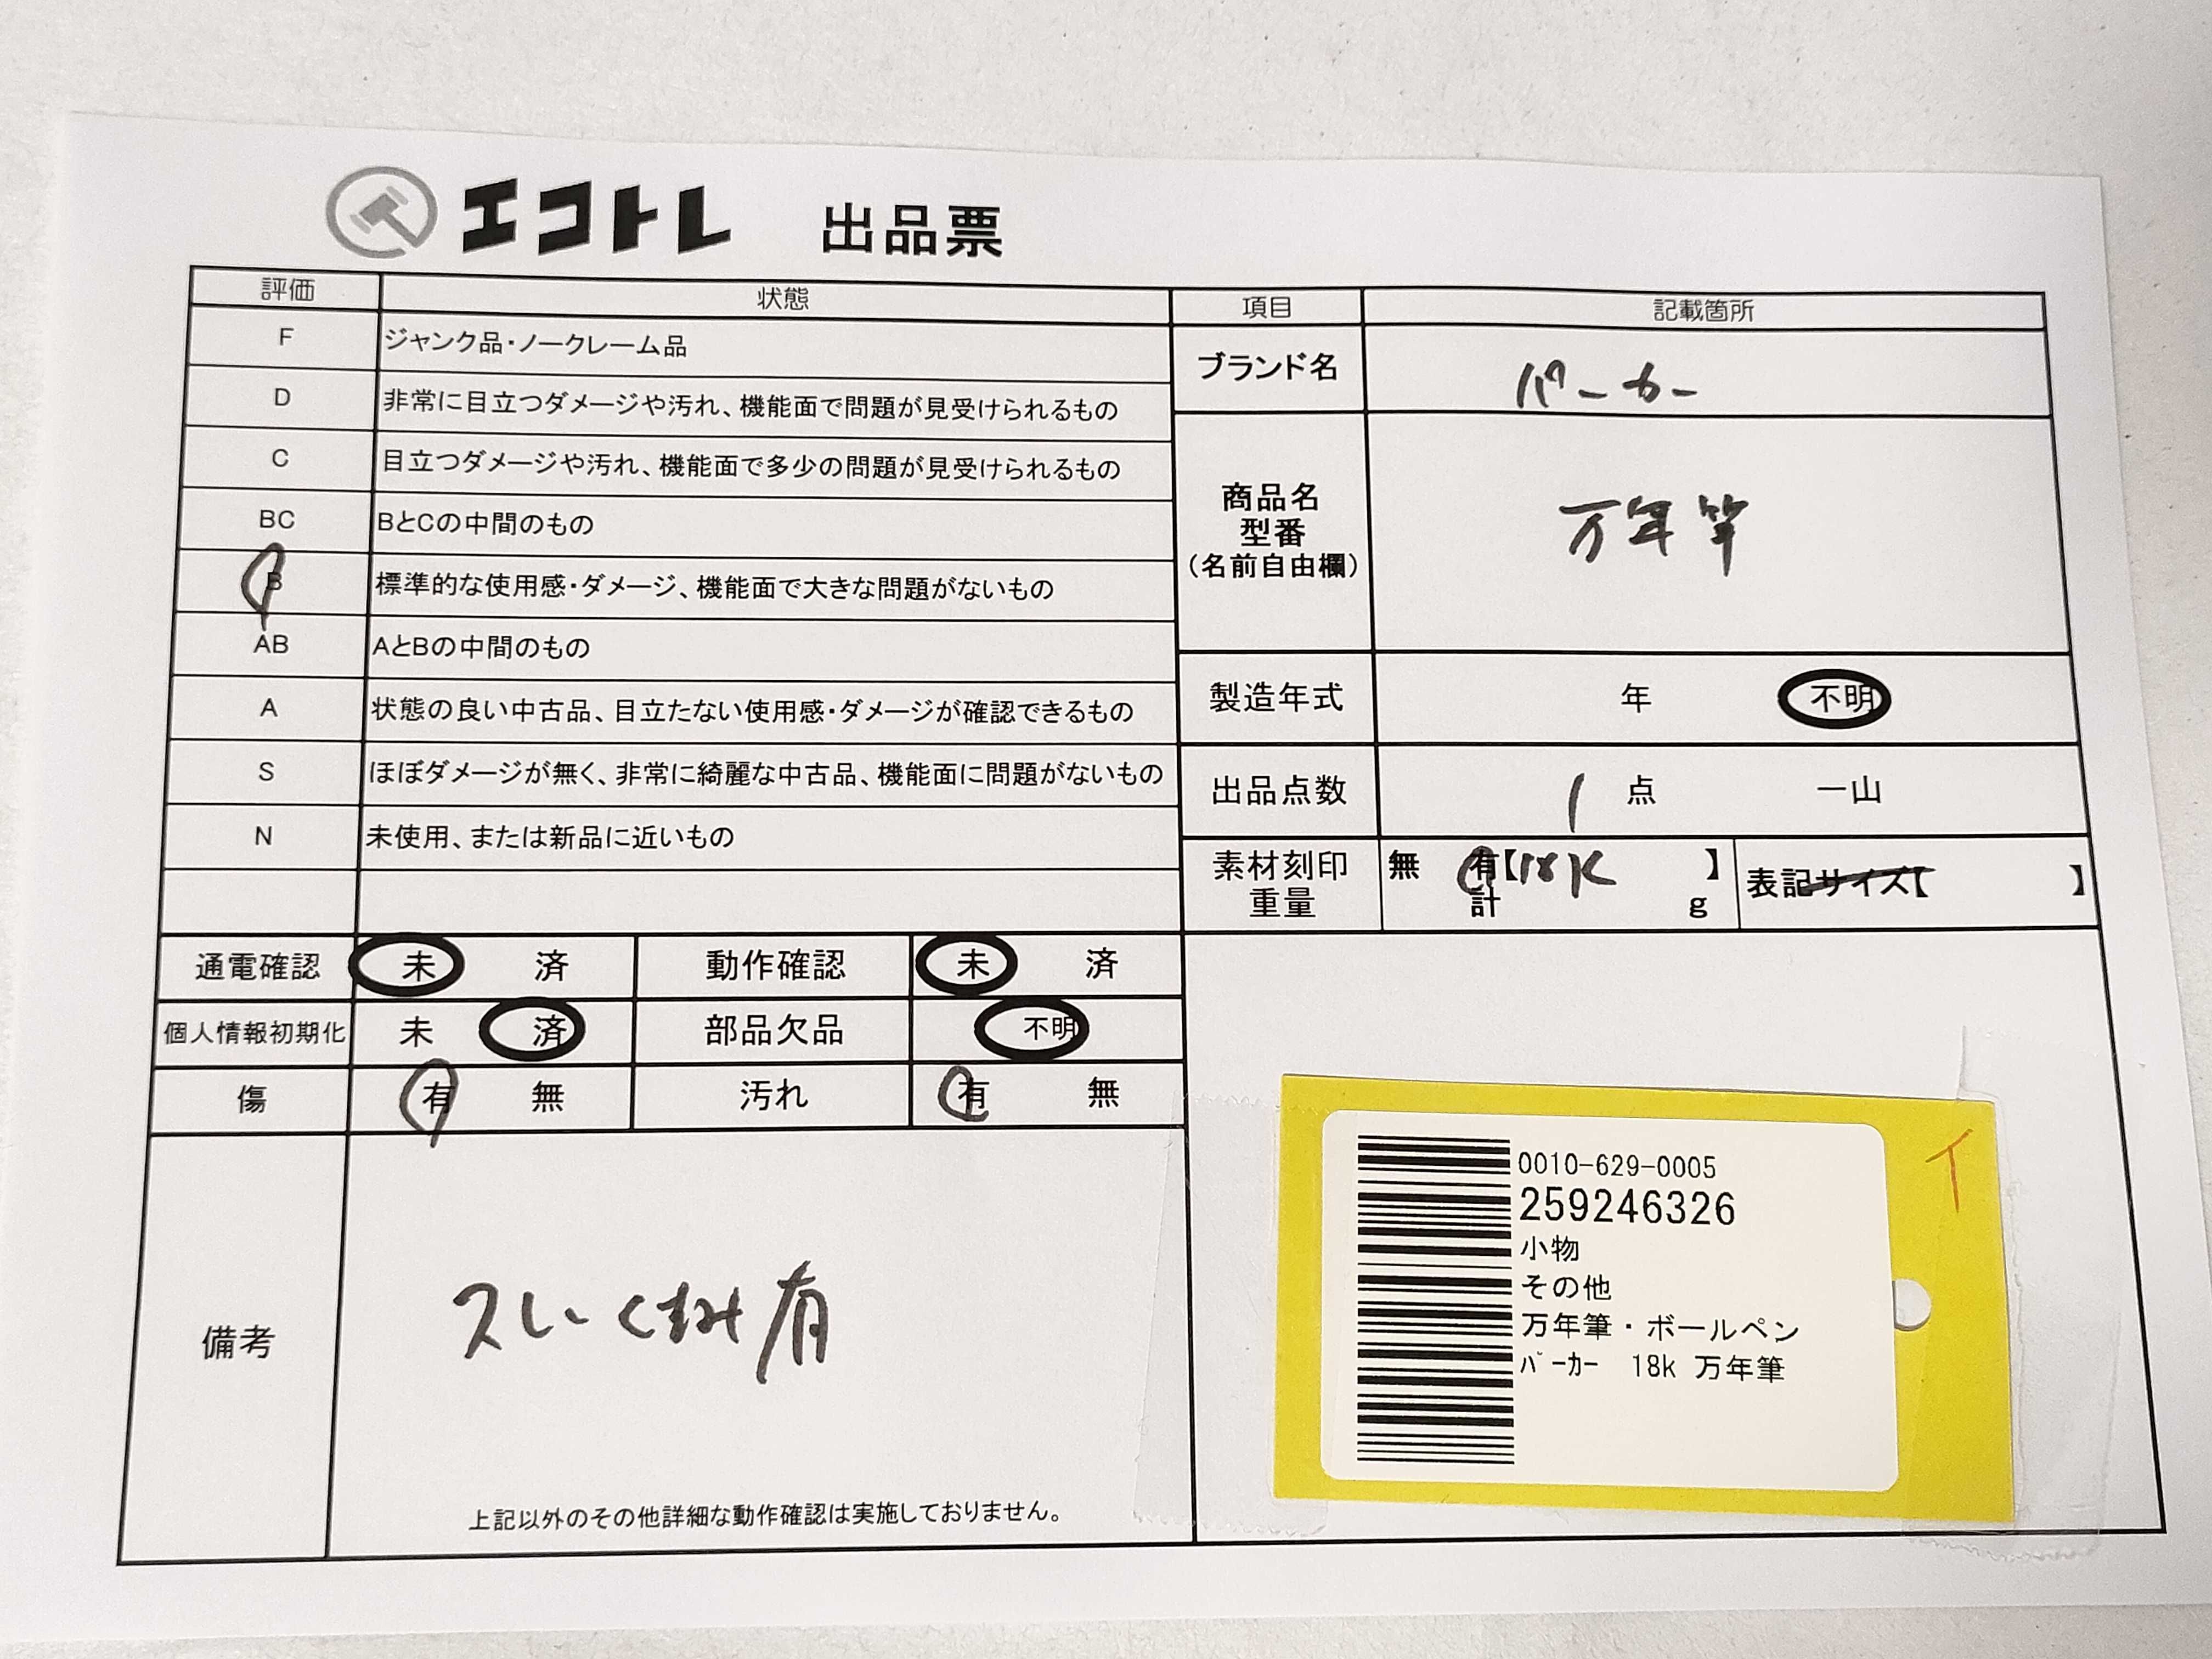 エコトレ 出品票
評価 状態
F ジャンク品・ノークレーム品
D 非常に目立つダメージや汚れ、機能面で問題が見受けられるもの
C 目立つダメージや汚れ、機能面で多少の問題が見受けられるもの
BC BとCの中間のもの
B 標準的な使用感・ダメージ、機能面で大きな問題がないもの
AB AとBの中間のもの
A 状態の良い中古品、目立たない使用感・ダメージが確認できるもの
S ほぼダメージが無く、非常に綺麗な中古品、機能面に問題がないもの
N 未使用、または新品に近いもの
項目 記載箇所
ブランド名 パーカー
商品名
型番
(名前自由欄)
万年筆
製造年式 年 不明
出品点数 1 点 一山
素材刻印 無 有【18K 】
重量 計 g
表記サイズ【 】
通電確認 未 済 動作確認 未 済
個人情報初期化 未 済 部品欠品 不明
傷 有 無 汚れ 有 無
備考
スレ・くすみ有
上記以外のその他詳細な動作確認は実施しておりません。
イ
0010-629-0005
259246326
小物
その他
万年筆・ボールペン
パーカー 18k 万年筆